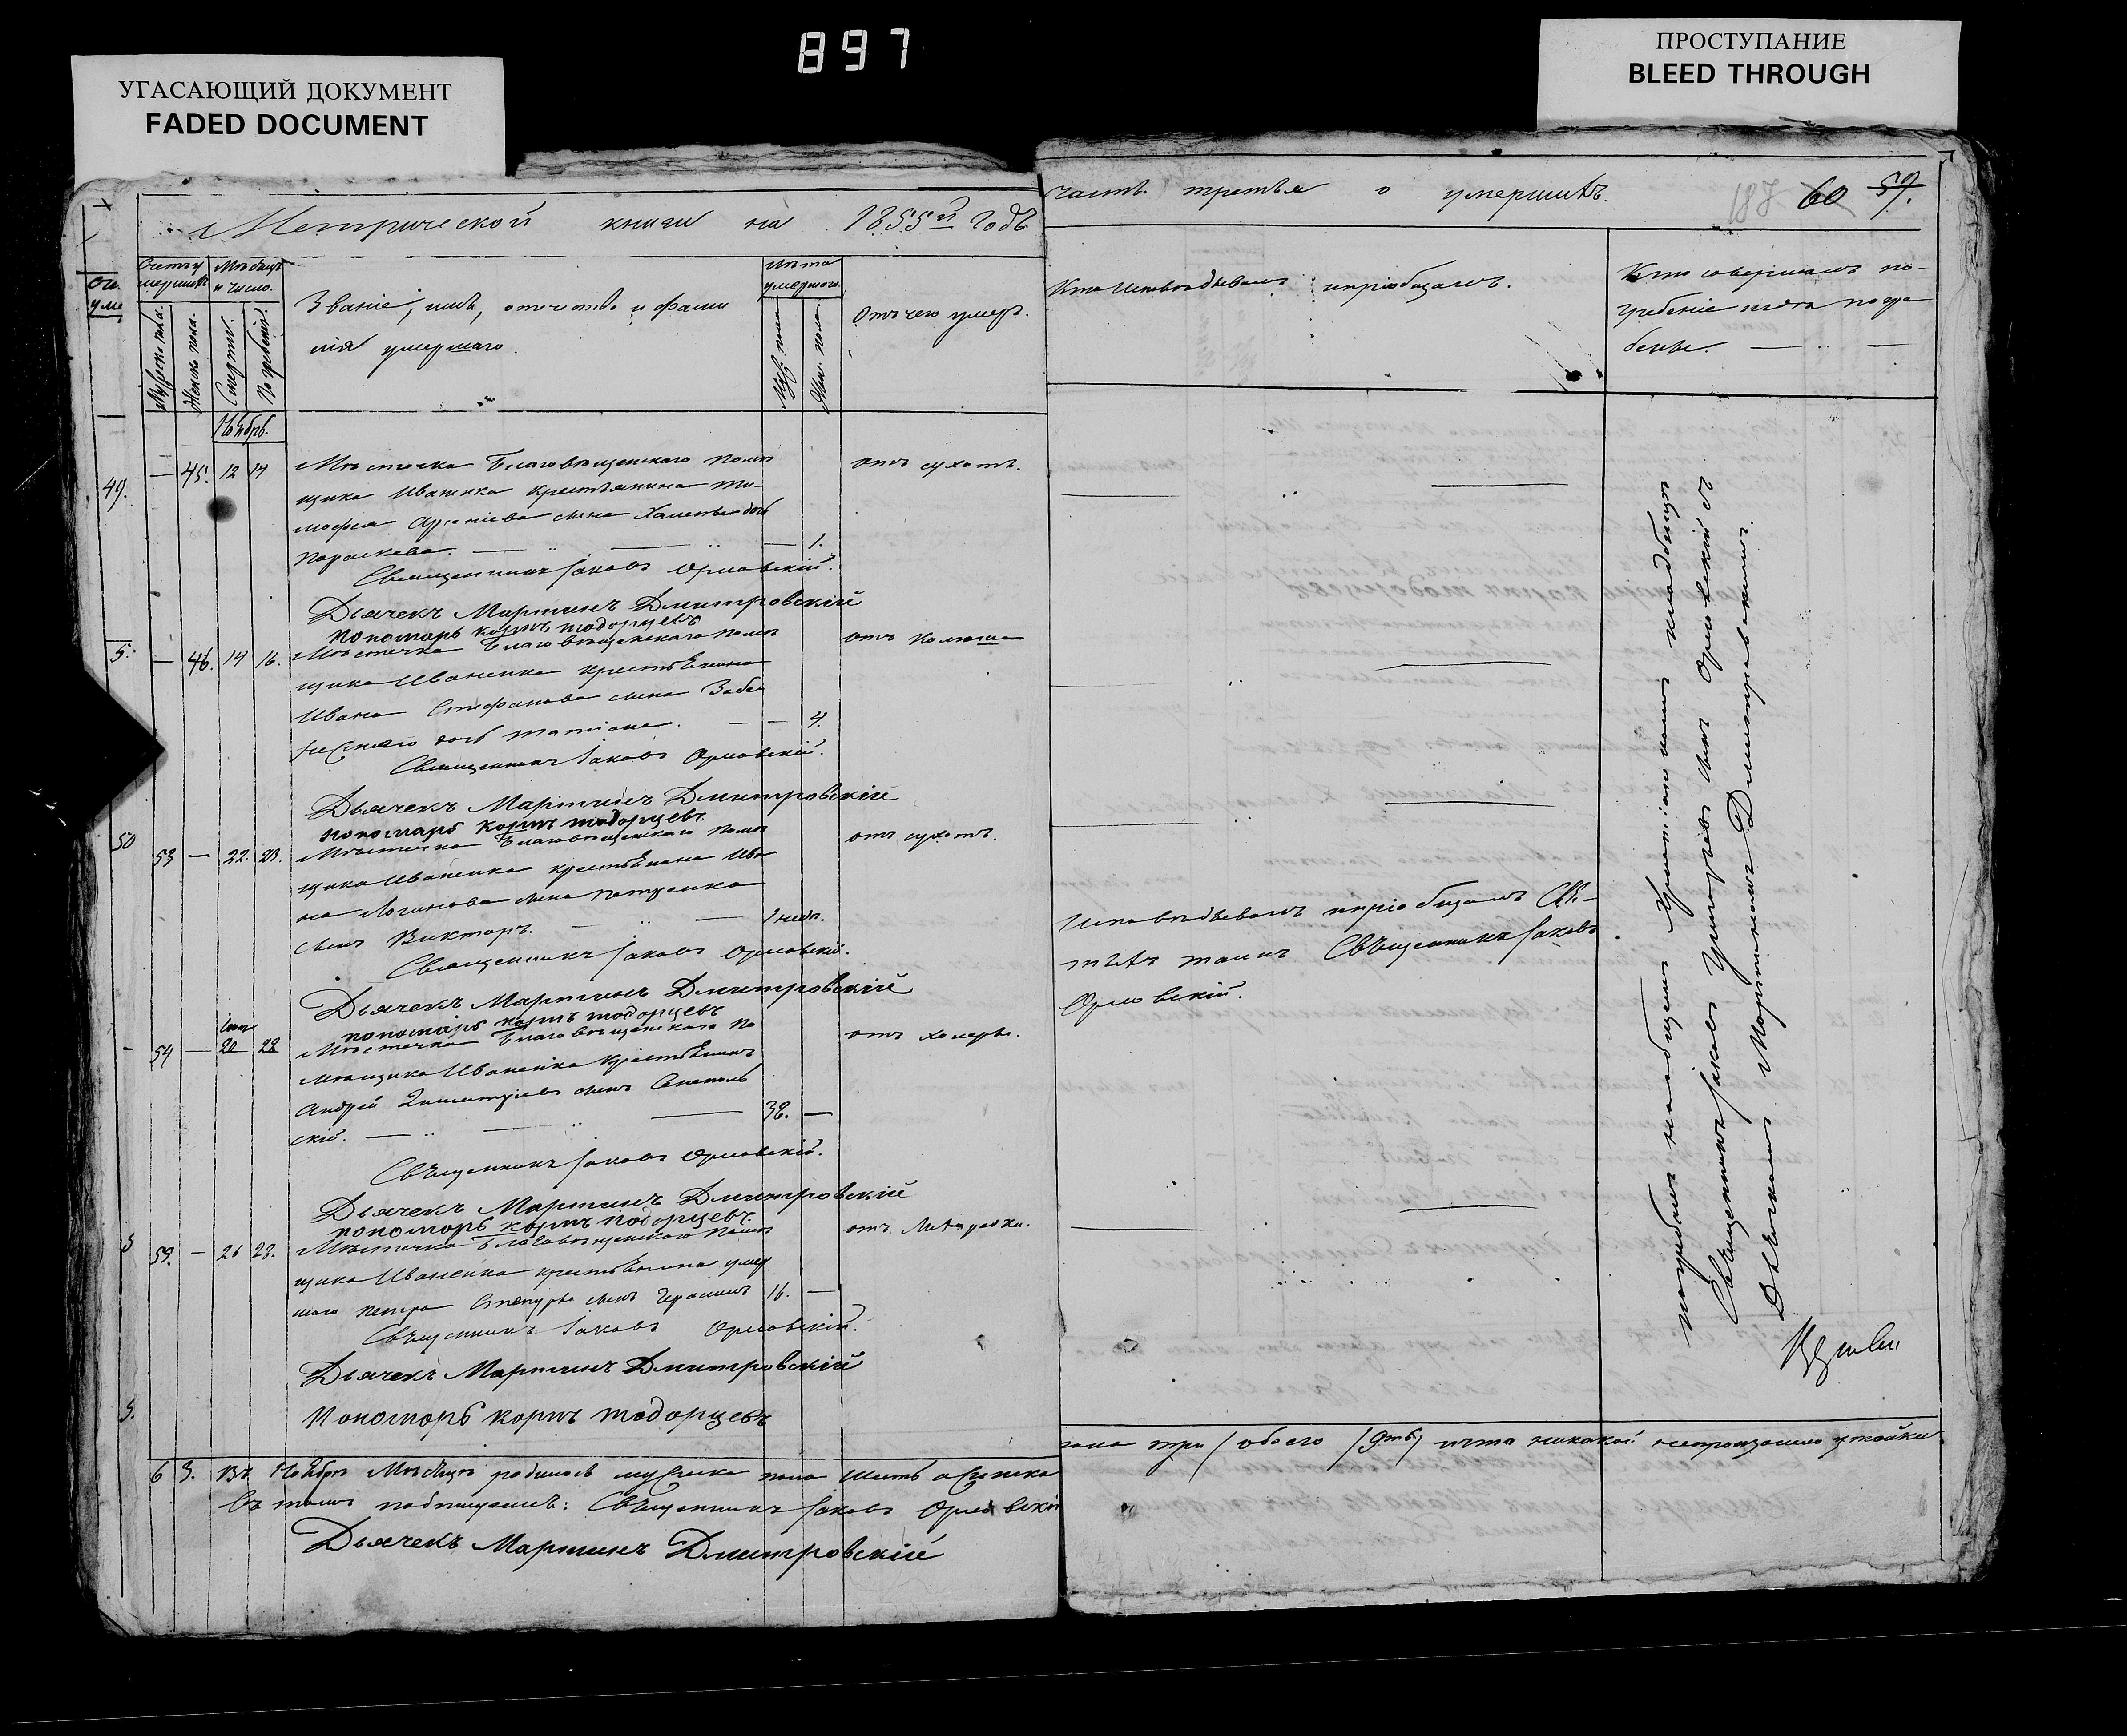 897
УГАСАЮЩИЙ ДОКУМЕНТ
FADED DOCUMENT
ПРОСТУПАНИЕ
BLEED THROUGH
Метрической книги на 1855й Годъ
часть третья о умершихъ.
187 60 59.
Мѣсяцъ
и число.
Званіе, имя, отчество и фами
лія умершаго.
Мужеска пола.
Женска пола.
Смерти.
Погребенія.
Лѣта
умершаго.
Муж. пола
Жен. пола
Отъ чего умеръ.
Кто исповѣдывалъ и пріобщалъ.
Кто совершалъ по-
гребеніе и гдѣ погре
бены.
Ноябрь.
49. — 45. 12 14 Мѣстечка Благовѣщенскаго помѣ
щика Иваненка крестьянина Ти-
мофея сына дочь
Параскева. — 1.
отъ сухотъ.
Священникъ Іаковъ Орловскій.
Дьячекъ Мартинъ Дмитровскій
пономарь тодорцевъ
5. — 46. 14 16. Мѣстечка Благовѣщенскаго помѣ
щика Иваненка крестьянина
Ивана Стефанова сына
дочь 4.
отъ
Священникъ Іаковъ Орловскій.
Дьячекъ Мартинъ Дмитровскій
пономарь тодорцевъ
50 53 — 22. 23. Мѣстечка Благовѣщенскаго помѣ
щика Иваненка крестьянина Ива
на Логинова сына Петренка
сынъ Викторъ. — 1 нед.
отъ сухотъ.
Священникъ Іаковъ Орловскій.
Дьячекъ Мартинъ Дмитровскій
пономарь тодорцевъ
54 — 20 22 Мѣстечка Благовѣщенскаго по
мѣщика Иваненка крестьянинъ
Андрей сынъ
скій. — 38. —
отъ холеры.
Исповѣдывалъ и пріобщалъ Свя-
тыхъ таинъ Священникъ Іаковъ
Орловскій.
Священникъ Іаковъ Орловскій.
Дьячекъ Мартинъ Дмитровскій
пономарь тодорцевъ
55. — 26 28. Мѣстечка Благовѣщенскаго помѣ
щика Иваненка крестьянина умер
шаго Петра сынъ Герасимъ 16. —
отъ лихорадки.
Священникъ Іаковъ Орловскій.
Дьячекъ Мартинъ Дмитровскій
Пономарь тодорцевъ
погребалъ на общемъ христіанскомъ кладбищѣ
Священникъ Іаковъ Григорьевъ сынъ Орловскій съ
Дьячкомъ Мартиномъ Дмитровскимъ.
6 3. Въ Ноябрѣ Мѣсяцѣ родилось мужеска пола шесть а женска
пола три / обоего / 9ть / и что никакой непроизошло утайки
въ томъ подпишемъ: Священникъ Іаковъ Орловскій
Дьячекъ Мартинъ Дмитровскій